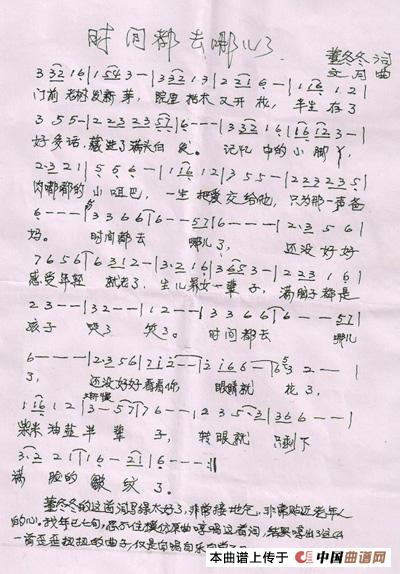 时间都去哪儿了
董冬冬 词
文同 曲
3 3216 | 1543 - | 3321 3 | 2216 - | 116 12 |
门前老树发新芽, 院里枯木又开花, 半生存了
3 55 - | 22323 57 | 6 - - - | 33216 | 116123 - |
好多话, 藏进了满头白发。 记忆中的小脚丫,
2·321 | 556 - | 116 12 | 35 - - | 223235 |
肉嘟嘟的小嘴巴, 一生把爱交给他, 只为那一声爸
6 - - - | 3366 | 6 - - 57 | 6 - - - | 2·356 |
妈。 时间都去 哪儿了, 还没好好
765 6 | 6312 - | 3·216 | 3653 - | 223 16 |
感受年轻 就老了, 生儿养女一辈子, 满脑子都是
23 - - | 32 - - | 12 - - | 3366 | 6 - - 57 |
孩子 哭了 笑了。 时间都去 哪儿
6 - - - | 2·356 | 712 - - | 2·166 - | 63 2 - - |
了, 还没好好看看你 眼睛就 花了,
116 12 | 3 - 57 | 76 - - - | 2353 | 366 - - |
柴米油盐半辈子, 转眼就 只剩下
3·221 | 116 - 21 | 6 - - - ||
满脸的皱纹了。
董冬冬的这首词写得太好了, 非常接地气, 非常贴近老年人
的心。我年已七旬, 忍不住模仿原曲哼唱这首词, 结果哼出了这么
一首歪歪扭扭的曲子,
本曲谱上传于 中国曲谱网